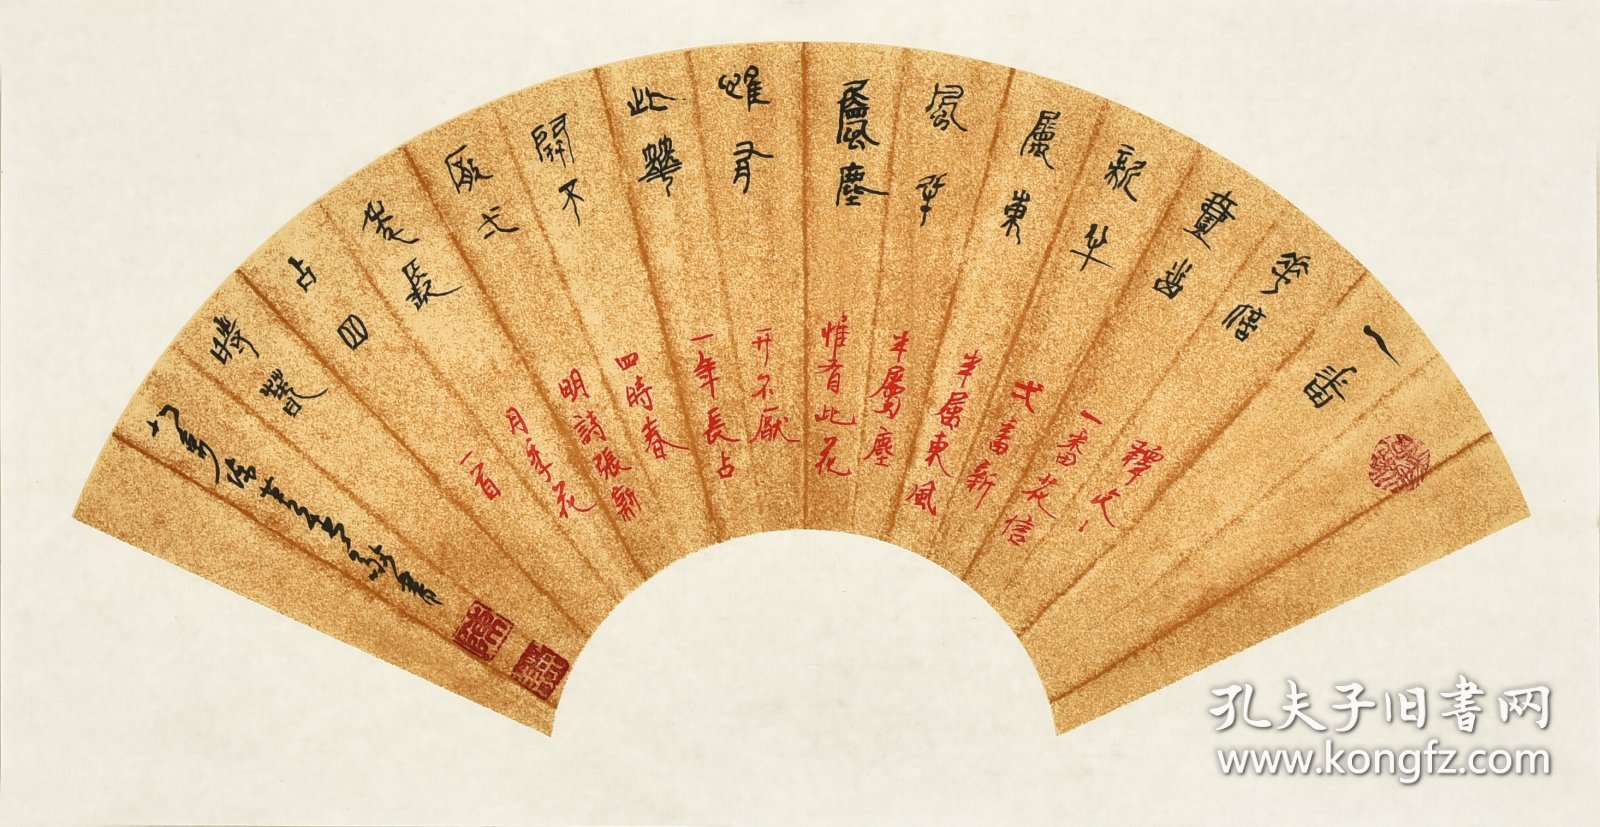 一番
花信
壹番
新半
屬東
風半
塵
惟有
此華
開不
厭弌
年長
占四
時春
書
釋文：
一番花信
弍番新
半屬東風
半屬塵
惟有此花
开不厭
一年長占
四時春
明詩張新
月季花
一首
孔夫子旧书网
www.kongfz.com